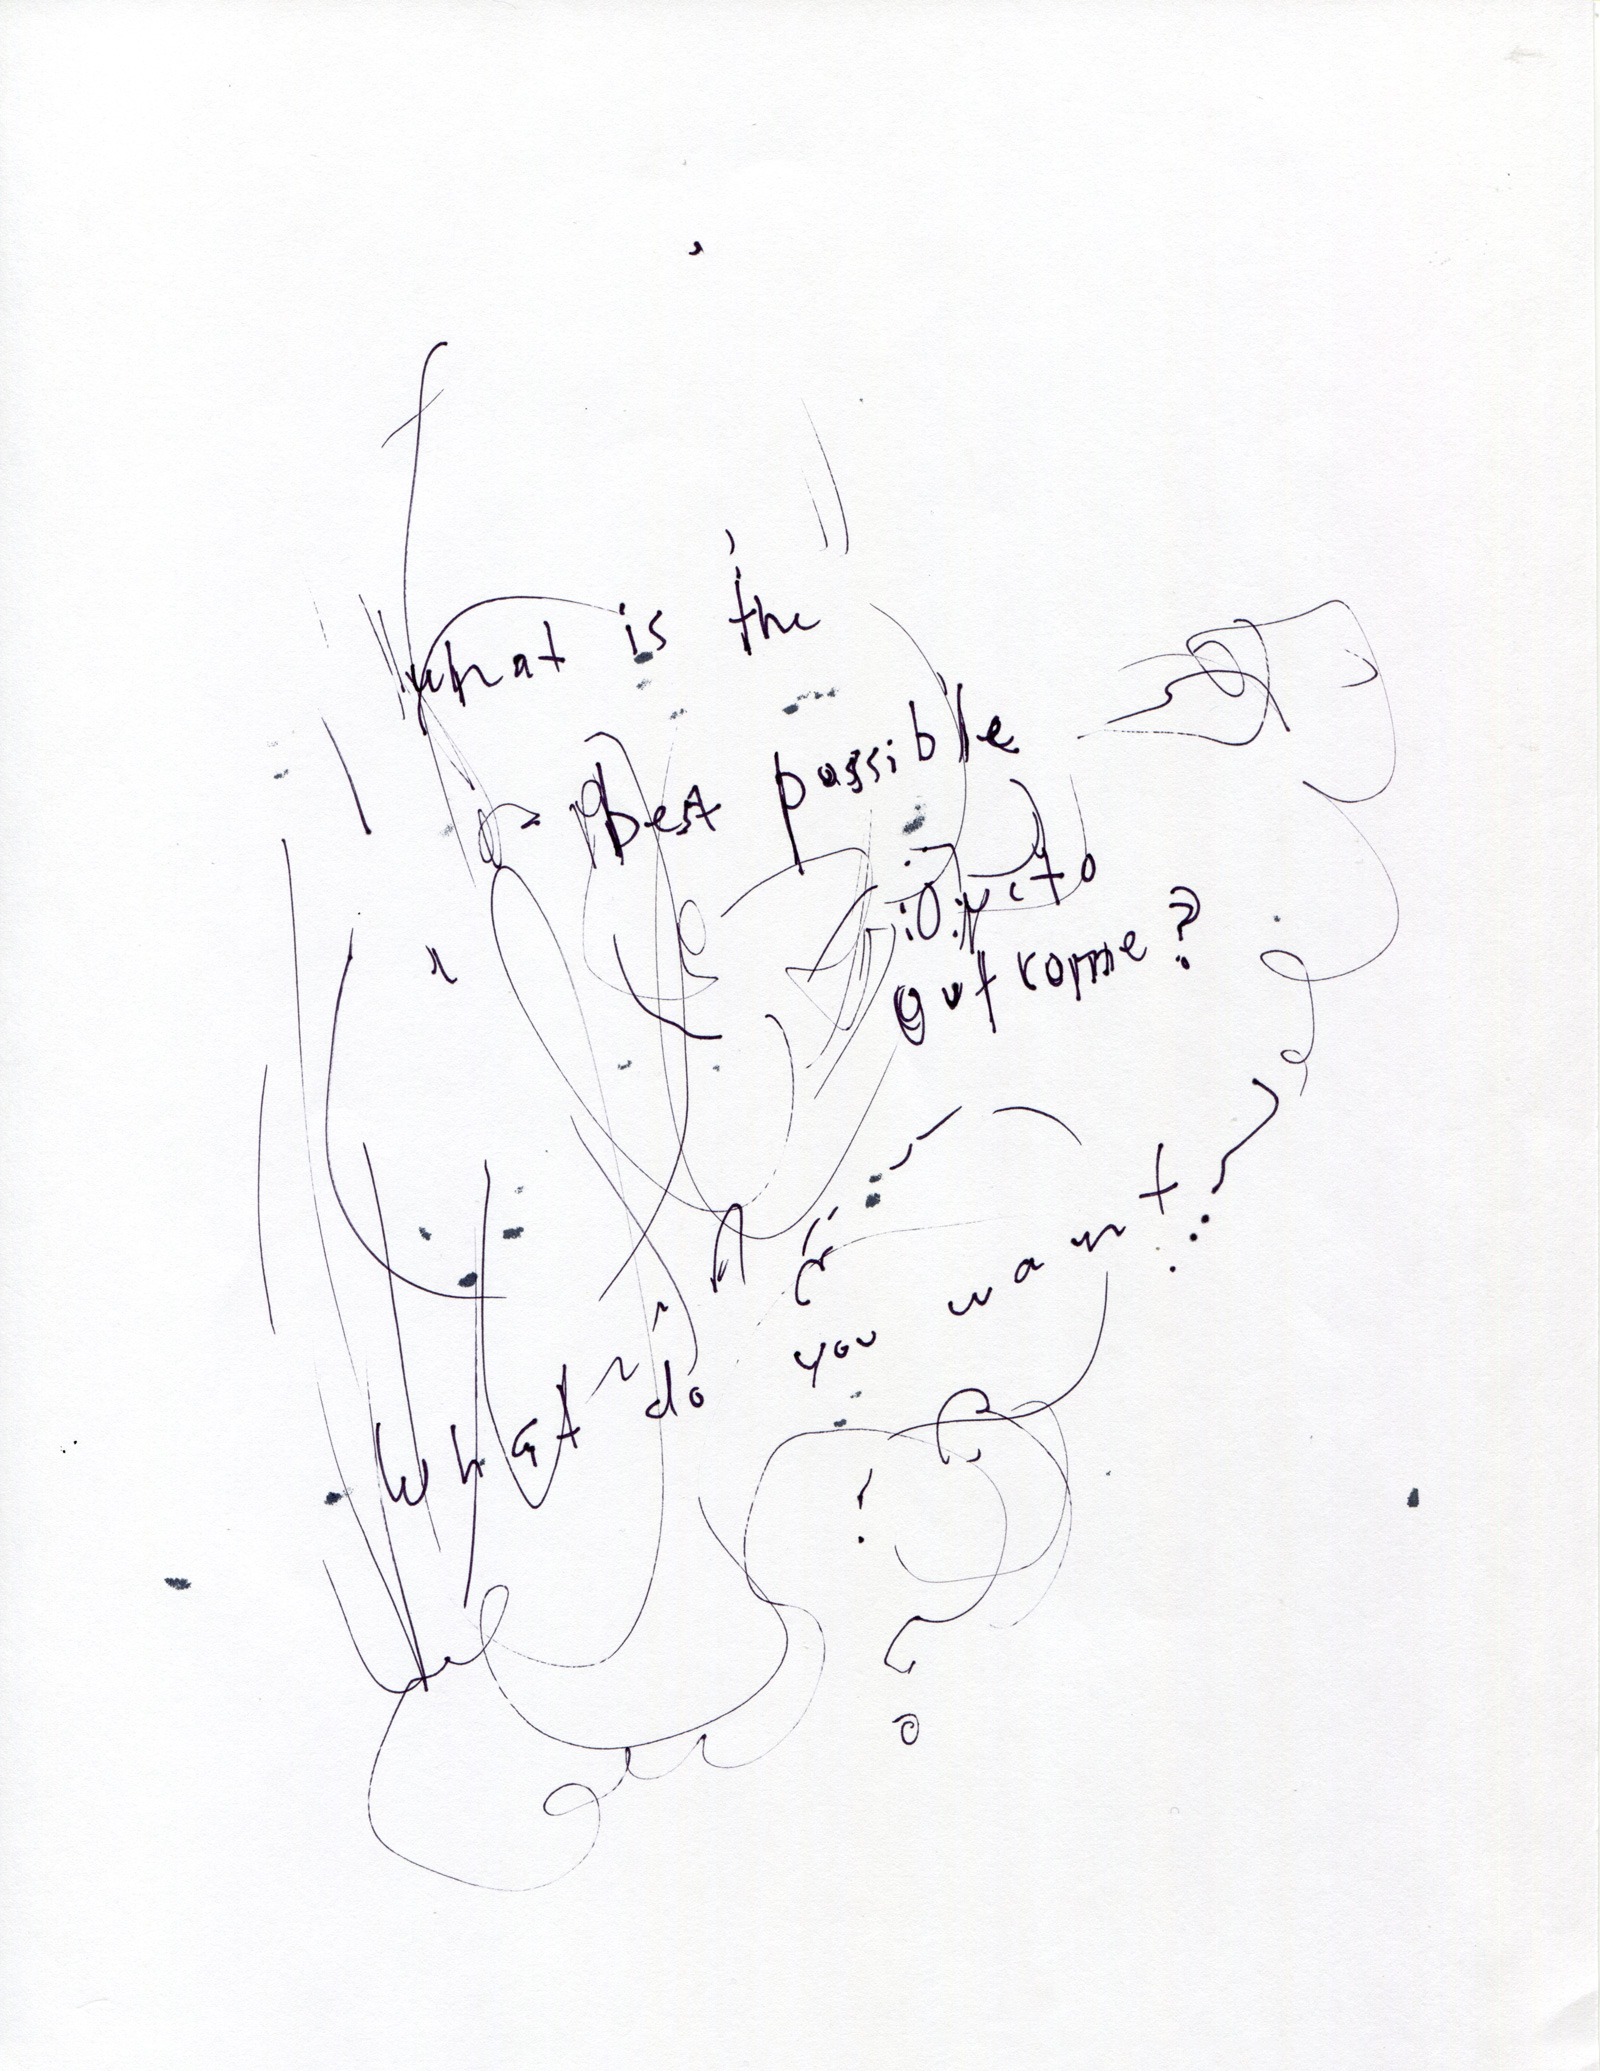 what is the
best possible
outcome?
What do you want
?